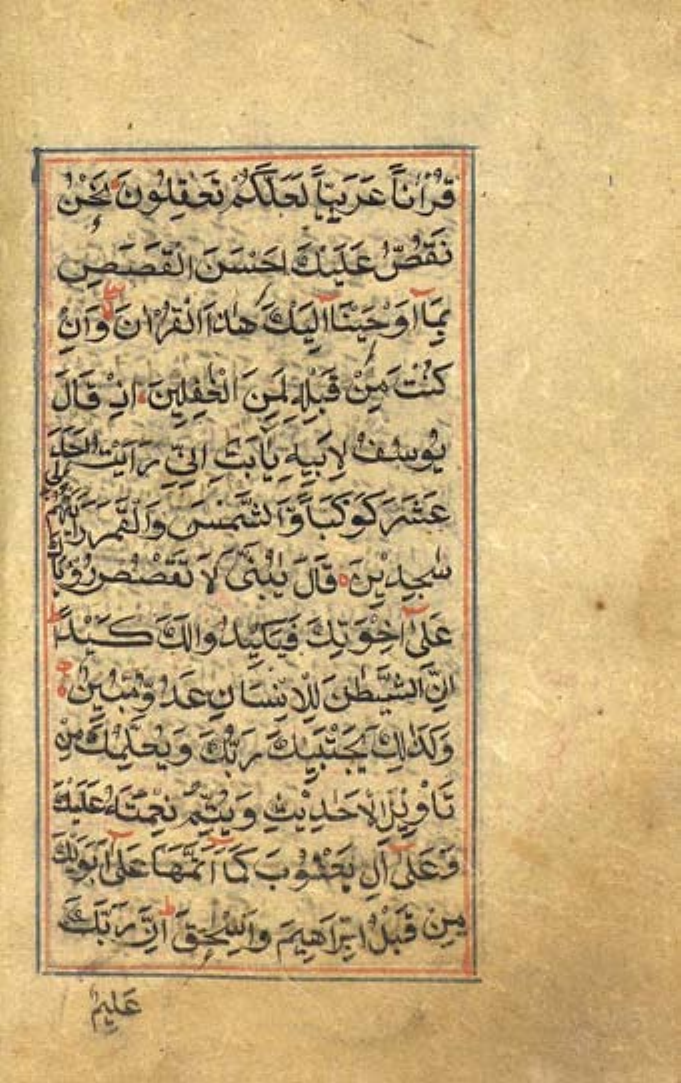 قُرْاٰنًا عَرَبِيًّا لَعَلَّكُمْ تَعْقِلُونَ نَحْنُ
نَقُصُّ عَلَيْكَ اَحْسَنَ الْقَصَصِ
بِمَا اَوْحَيْنَا اِلَيْكَ هٰذَا الْقُرْاٰنَ وَاِنْ
كُنْتَ مِنْ قَبْلِهٖ لَمِنَ الْغٰفِلِينَ اِذْ قَالَ
يُوسُفُ لِاَبِيهِ يٰاَبَتِ اِنِّي رَاَيْتُ اَحَدَ
عَشَرَ كَوْكَبًا وَّالشَّمْسَ وَالْقَمَرَ رَاَيْتُهُمْ لِي
سٰجِدِينَ قَالَ يٰبُنَيَّ لَا تَقْصُصْ رُؤْيَاكَ
عَلٰى اِخْوَتِكَ فَيَكِيدُوا لَكَ كَيْدًا
اِنَّ الشَّيْطٰنَ لِلْاِنْسَانِ عَدُوٌّ مُّبِينٌ
وَكَذٰلِكَ يَجْتَبِيكَ رَبُّكَ وَيُعَلِّمُكَ مِنْ
تَاْوِيلِ الْاَحَادِيثِ وَيُتِمُّ نِعْمَتَهٗ عَلَيْكَ
وَعَلٰى اٰلِ يَعْقُوبَ كَمَا اَتَمَّهَا عَلٰى اَبَوَيْكَ
مِنْ قَبْلُ اِبْرَاهِيمَ وَاِسْحٰقَ اِنَّ رَبَّكَ
عَلِيمٌ